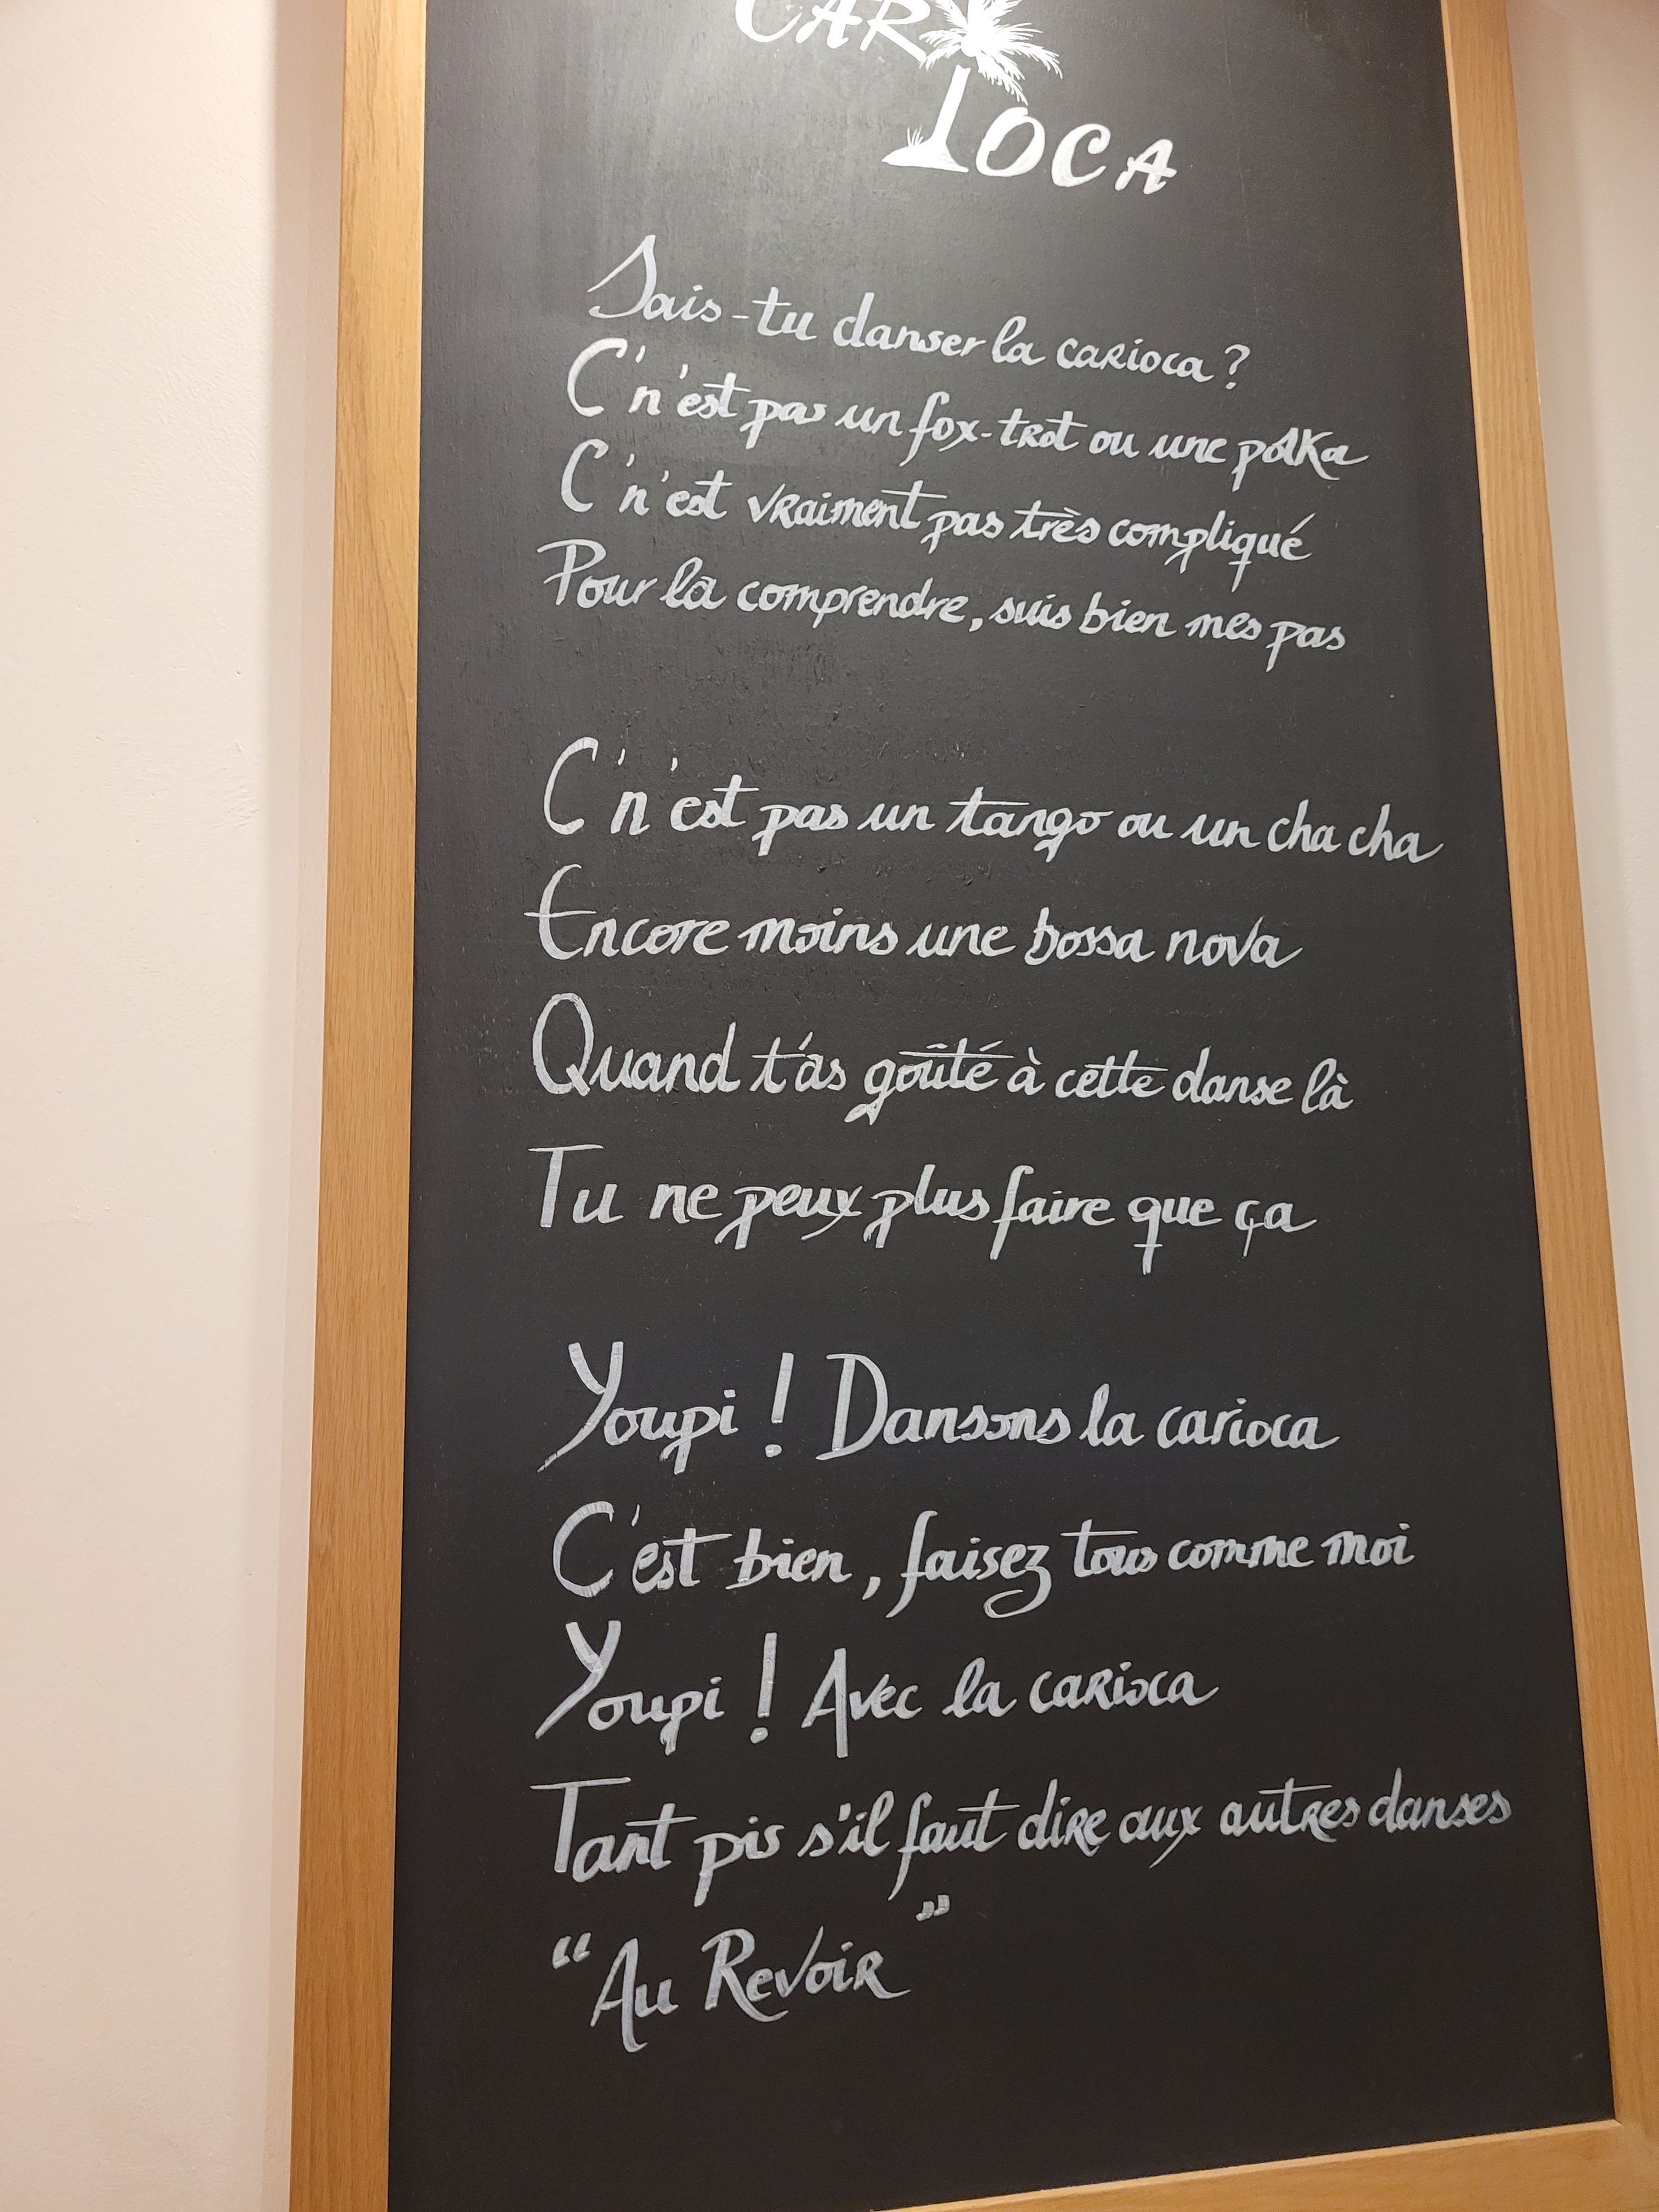 CAR
IOCA
Sais-tu danser la carioca ?
C'n'est pas un fox-trot ou une polka
C'n'est vraiment pas très compliqué
Pour la comprendre, suis bien mes pas
C'n'est pas un tango ou un cha cha
Encore moins une bossa nova
Quand t'as goûté à cette danse là
Tu ne peux plus faire que ça
Youpi ! Dansons la carioca
C'est bien, faisez tous comme moi
Youpi ! Avec la carioca
Tant pis s'il faut dire aux autres danses
“Au Revoir”